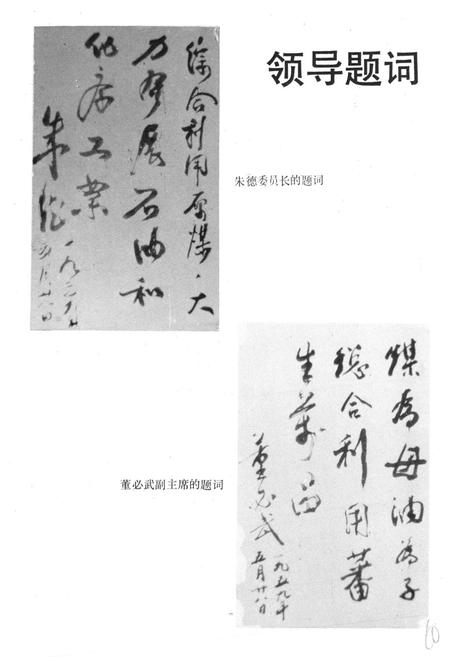 领导题词
综合利用原煤、大
力发展石油和
化学工业
朱德
一九五九年
五月廿八日
朱德委员长的题词
煤为母油为子
总合利用蕃
生万品
董必武
一九五九年
五月廿八日
董必武副主席的题词